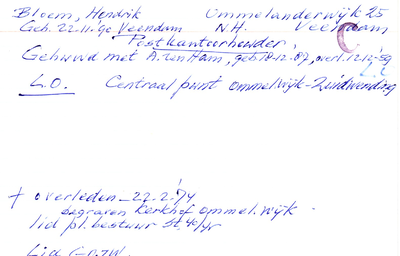 Bloem, Hendrik Ommelanderwijk 25
Geb. 22-11-90 Veendam N.H. Veendam
Postkantoorhouder,
Gehuwd met A. ten Ham, geb. 18-12-87, overl. 12-12-'59
L.O. Centraal punt Ommelwijk-Zuidwending
+ overleden - 22-2-'74
begraven Kerkhof Ommel.wijk.
lid pl. bestuur
Lid